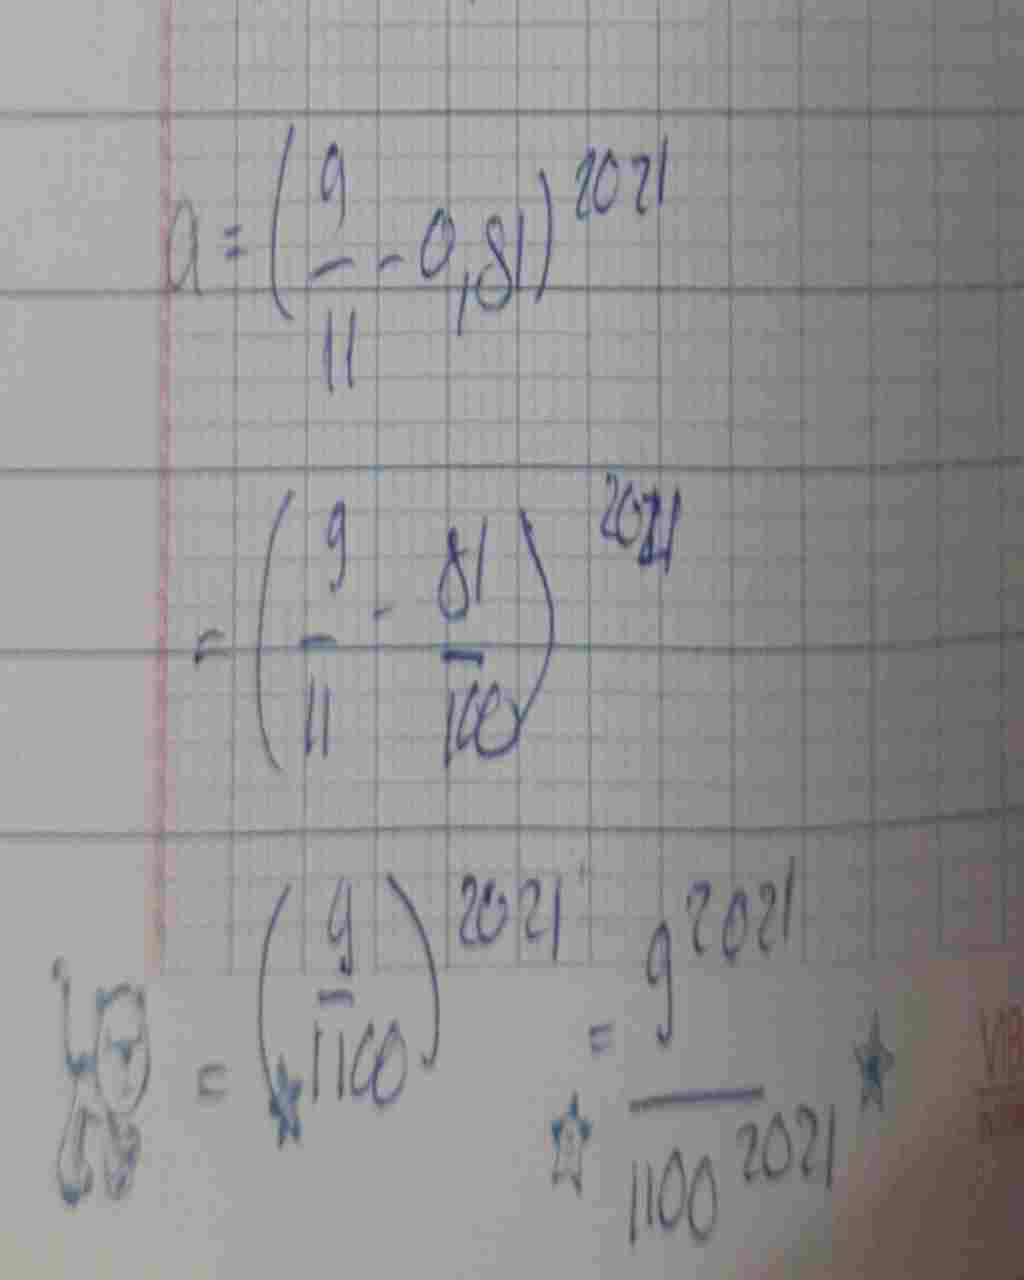 a = (9/11 - 0,81)^2021
= (9/11 - 81/100)^2021
= (9/1100)^2021 = 9^2021/1100^2021